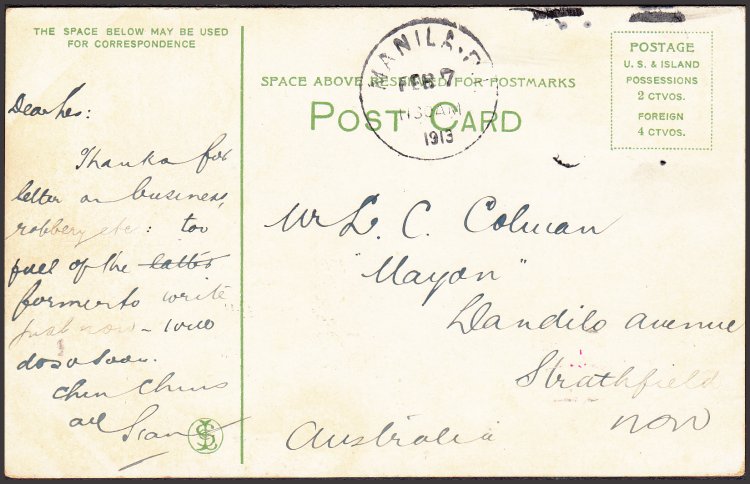 THE SPACE BELOW MAY BE USED
FOR CORRESPONDENCE
SPACE ABOVE RESERVED FOR POSTMARKS
POST CARD
MANILA
FEB 7
1130AM
1913
POSTAGE
U. S. & ISLAND
POSSESSIONS
2 CTVOS.
FOREIGN
4 CTVOS.
Thanks for
letter on business,
robbery etc: too
full of the latter
former to write
just now - will
do so soon.
Chin Chins
all
Mr L. C. Colman
"Mayon"
Dandilo avenue
Strathfield
NSW
Australia